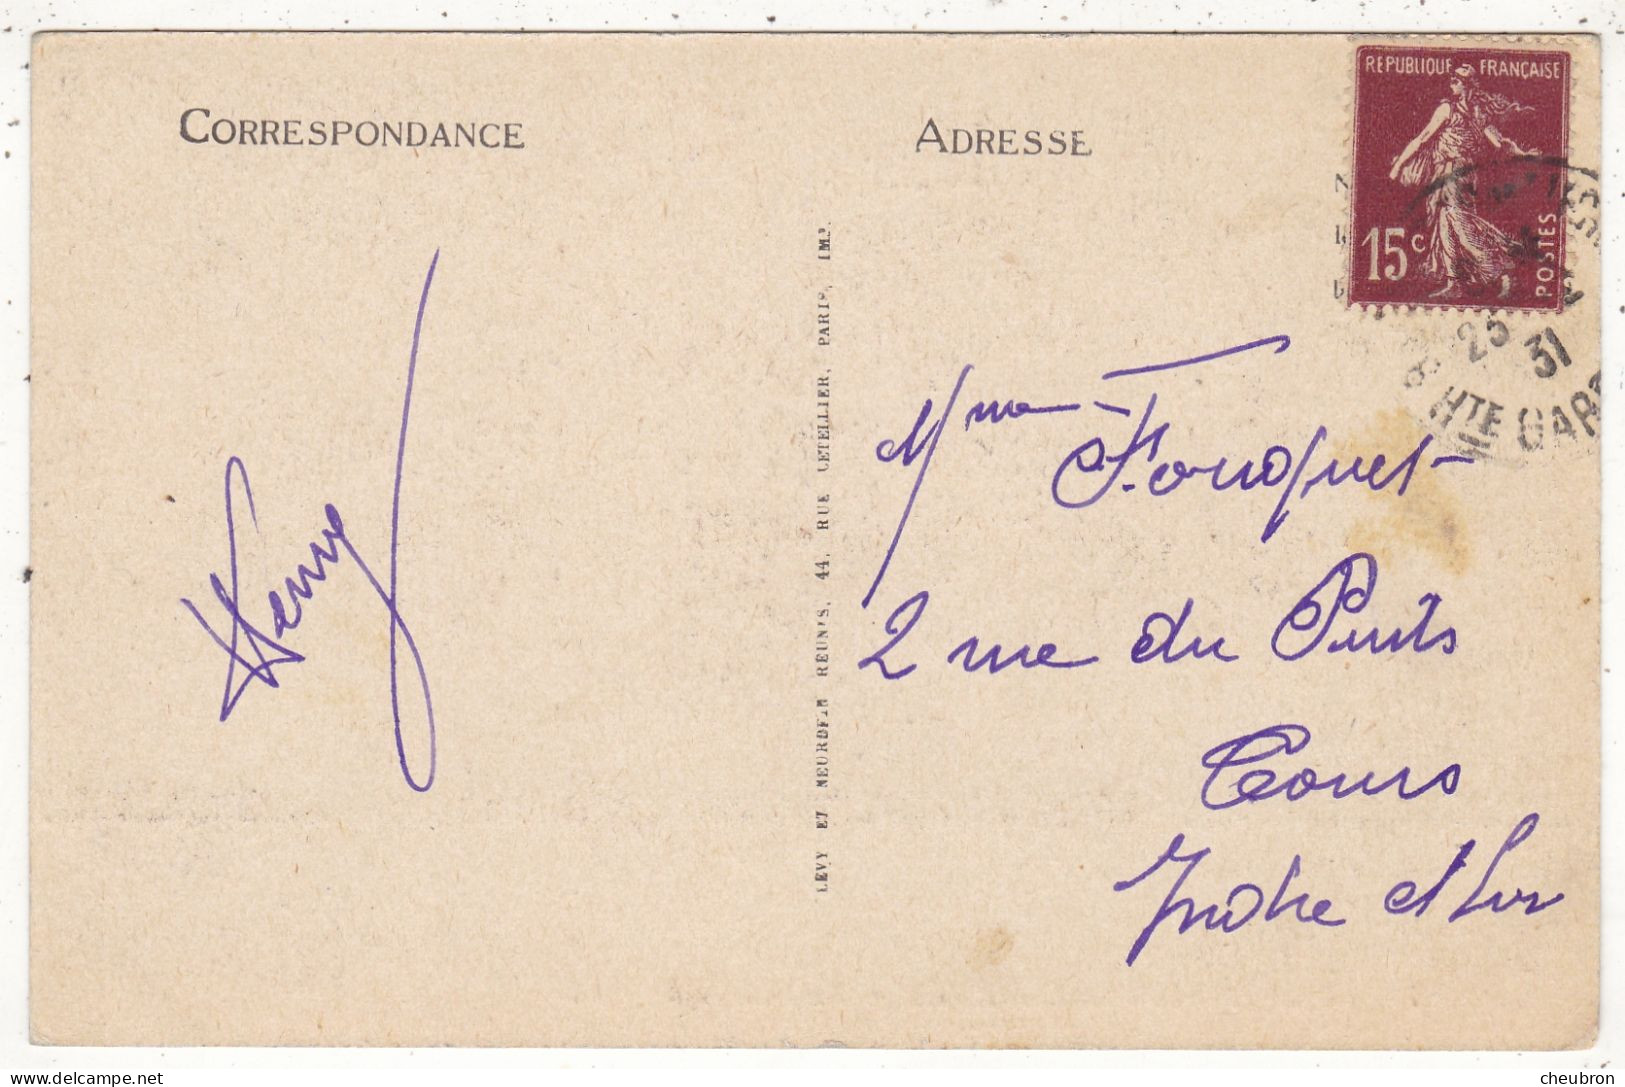 CORRESPONDANCE
ADRESSE
REPUBLIQUE FRANÇAISE
15c
POSTES
25
31
HTE GAR
LEVY ET NEURDEIN REUNIS, 44, RUE LETELLIER, PARIS, IMP.
Henry
Mme Fouquet
2 rue du Puits
Tours
Indre et Loir
delcampe.net
cheubron